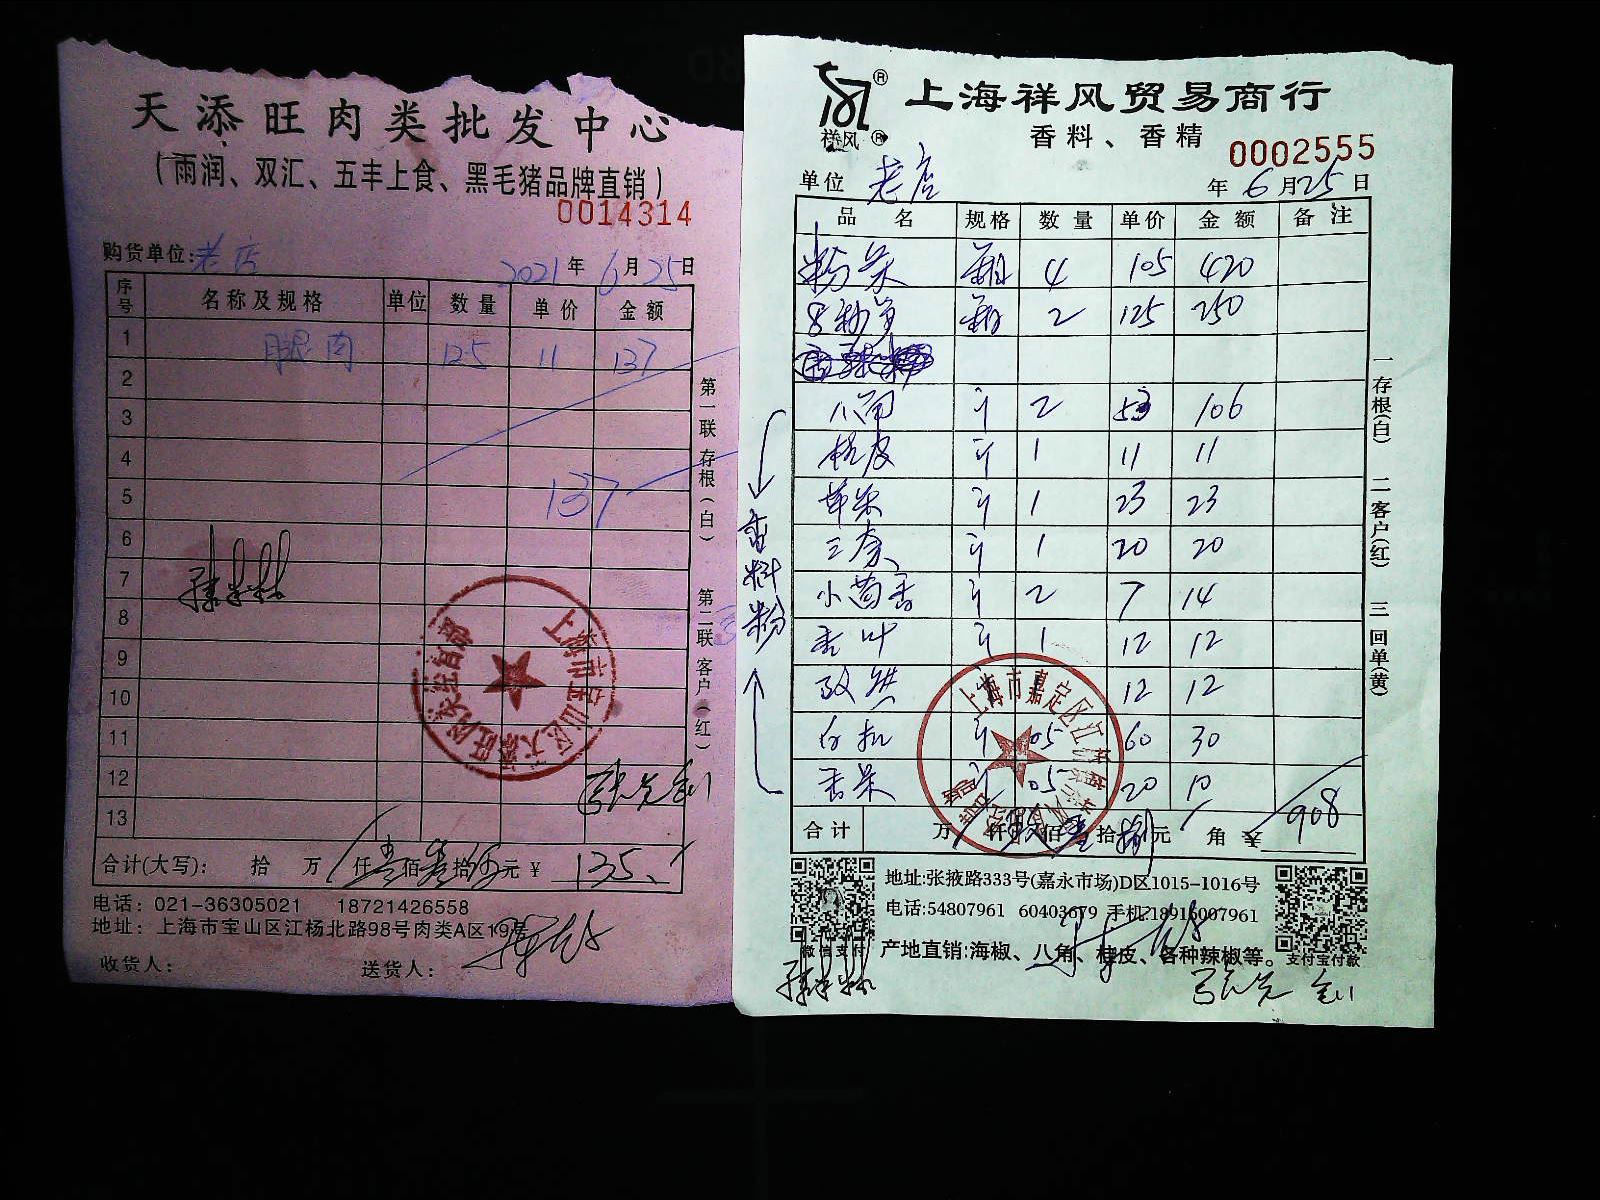 天添旺肉类批发中心
(雨润、双汇、五丰上食、黑毛猪品牌直销)
0014314
购货单位:老店 2021年6月25日
序号 名称及规格 单位 数量 单价 金额
1 腿肉 125 11 137
2
3
4
5 137
6
7
8
9
10
11
12
13
合计(大写): 拾 万 仟壹佰叁拾伍元 ¥ 135
电话: 021-36305021 18721426558
地址: 上海市宝山区江杨北路98号肉类A区19号
收货人: 送货人:
第一联 存根(白)
第二联 客户(红)
祥风
上海祥风贸易商行
香料、香精
0002555
单位 老店 年6月25日
品名 规格 数量 单价 金额 备注
4 105 420
2 125 250
八角 斤 2 53 106
桂皮 斤 1 11 11
草果 斤 1 23 23
三奈 斤 1 20 20
小茴香 斤 2 7 14
香叶 斤 1 12 12
孜然 12 12
白扣 斤 05 60 30
香果 斤 05 20 10
合计 万 仟玖佰壹拾捌元 角 ¥ 908
香料粉
一存根(白) 二客户(红) 三回单(黄)
地址:张掖路333号(嘉永市场)D区1015-1016号
电话:54807961 60403679 手机:18915007961
产地直销:海椒、八角、桂皮、各种辣椒等。
微信支付
支付宝付款